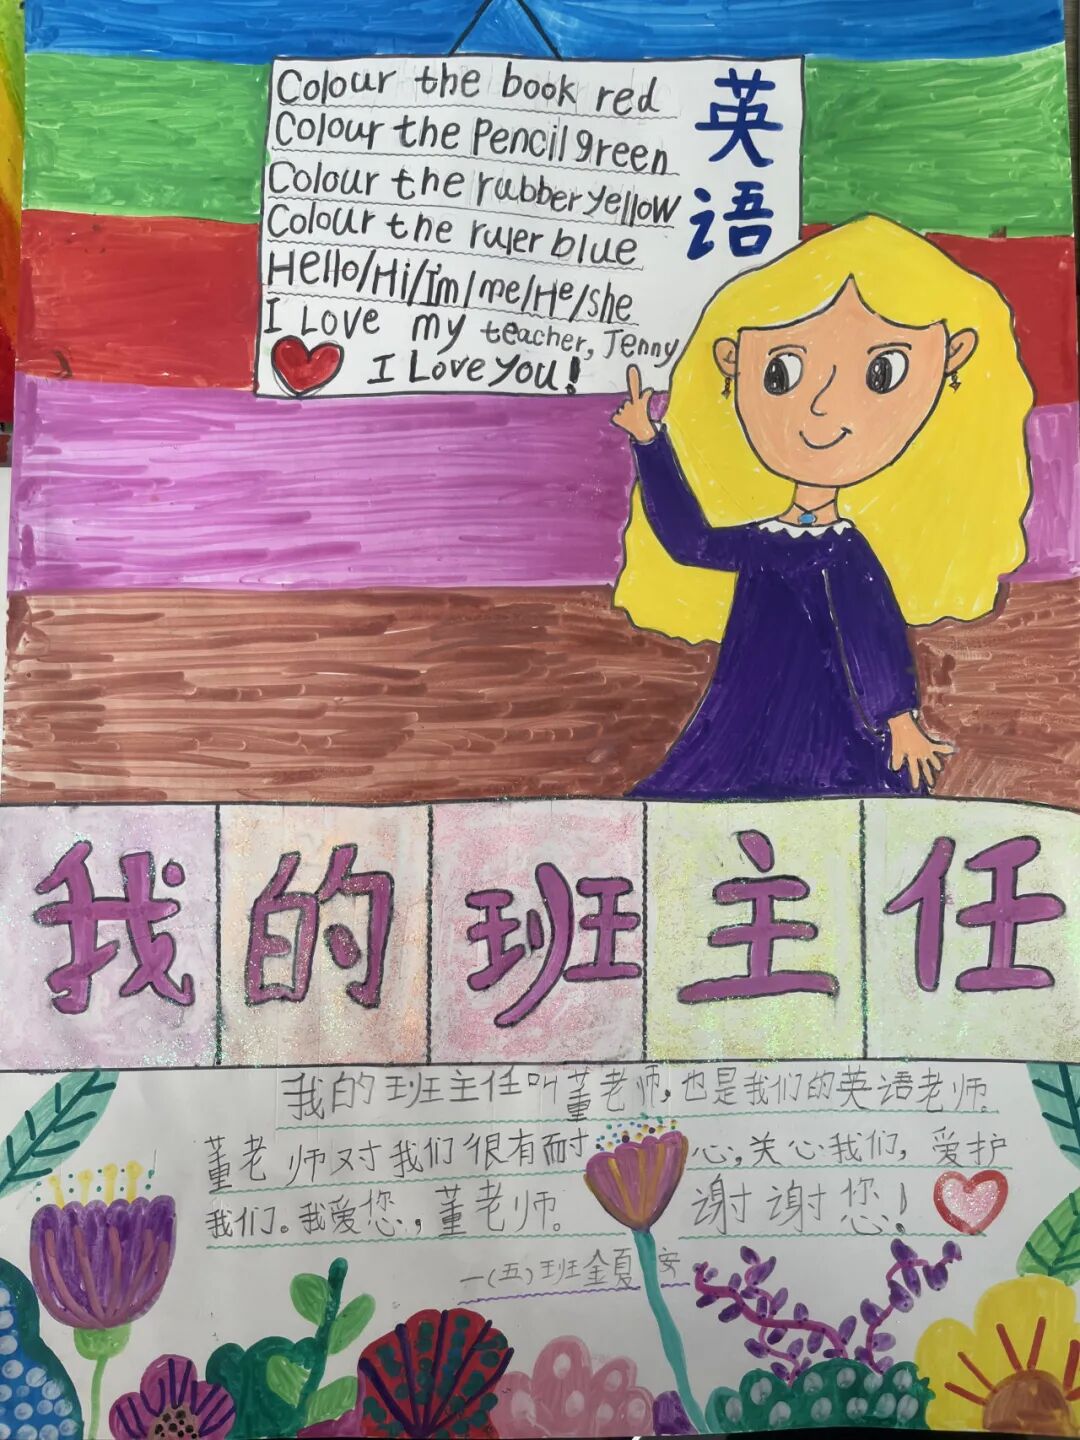 Colour the book red
Colour the Pencil green
Colour the rubber yellow
Colour the ruler blue
Hello/Hi/I'm/me/He/she
I Love my teacher, Jenny
I Love You!
英语
我的班主任
我的班主任叫董老师,也是我们的英语老师。
董老师对我们很有耐心,关心我们,爱护
我们。我爱您,董老师。谢谢您!
一(五)班金夏安